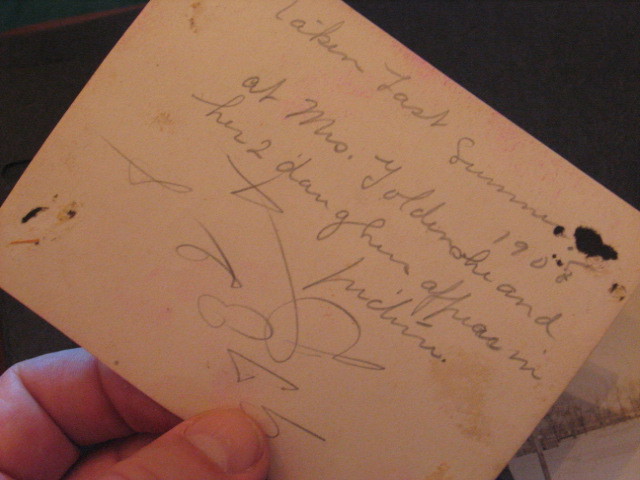 Taken Last Summer
1908
at Mrs. Yoldenshe and
her 2 daughers appears in
picture.